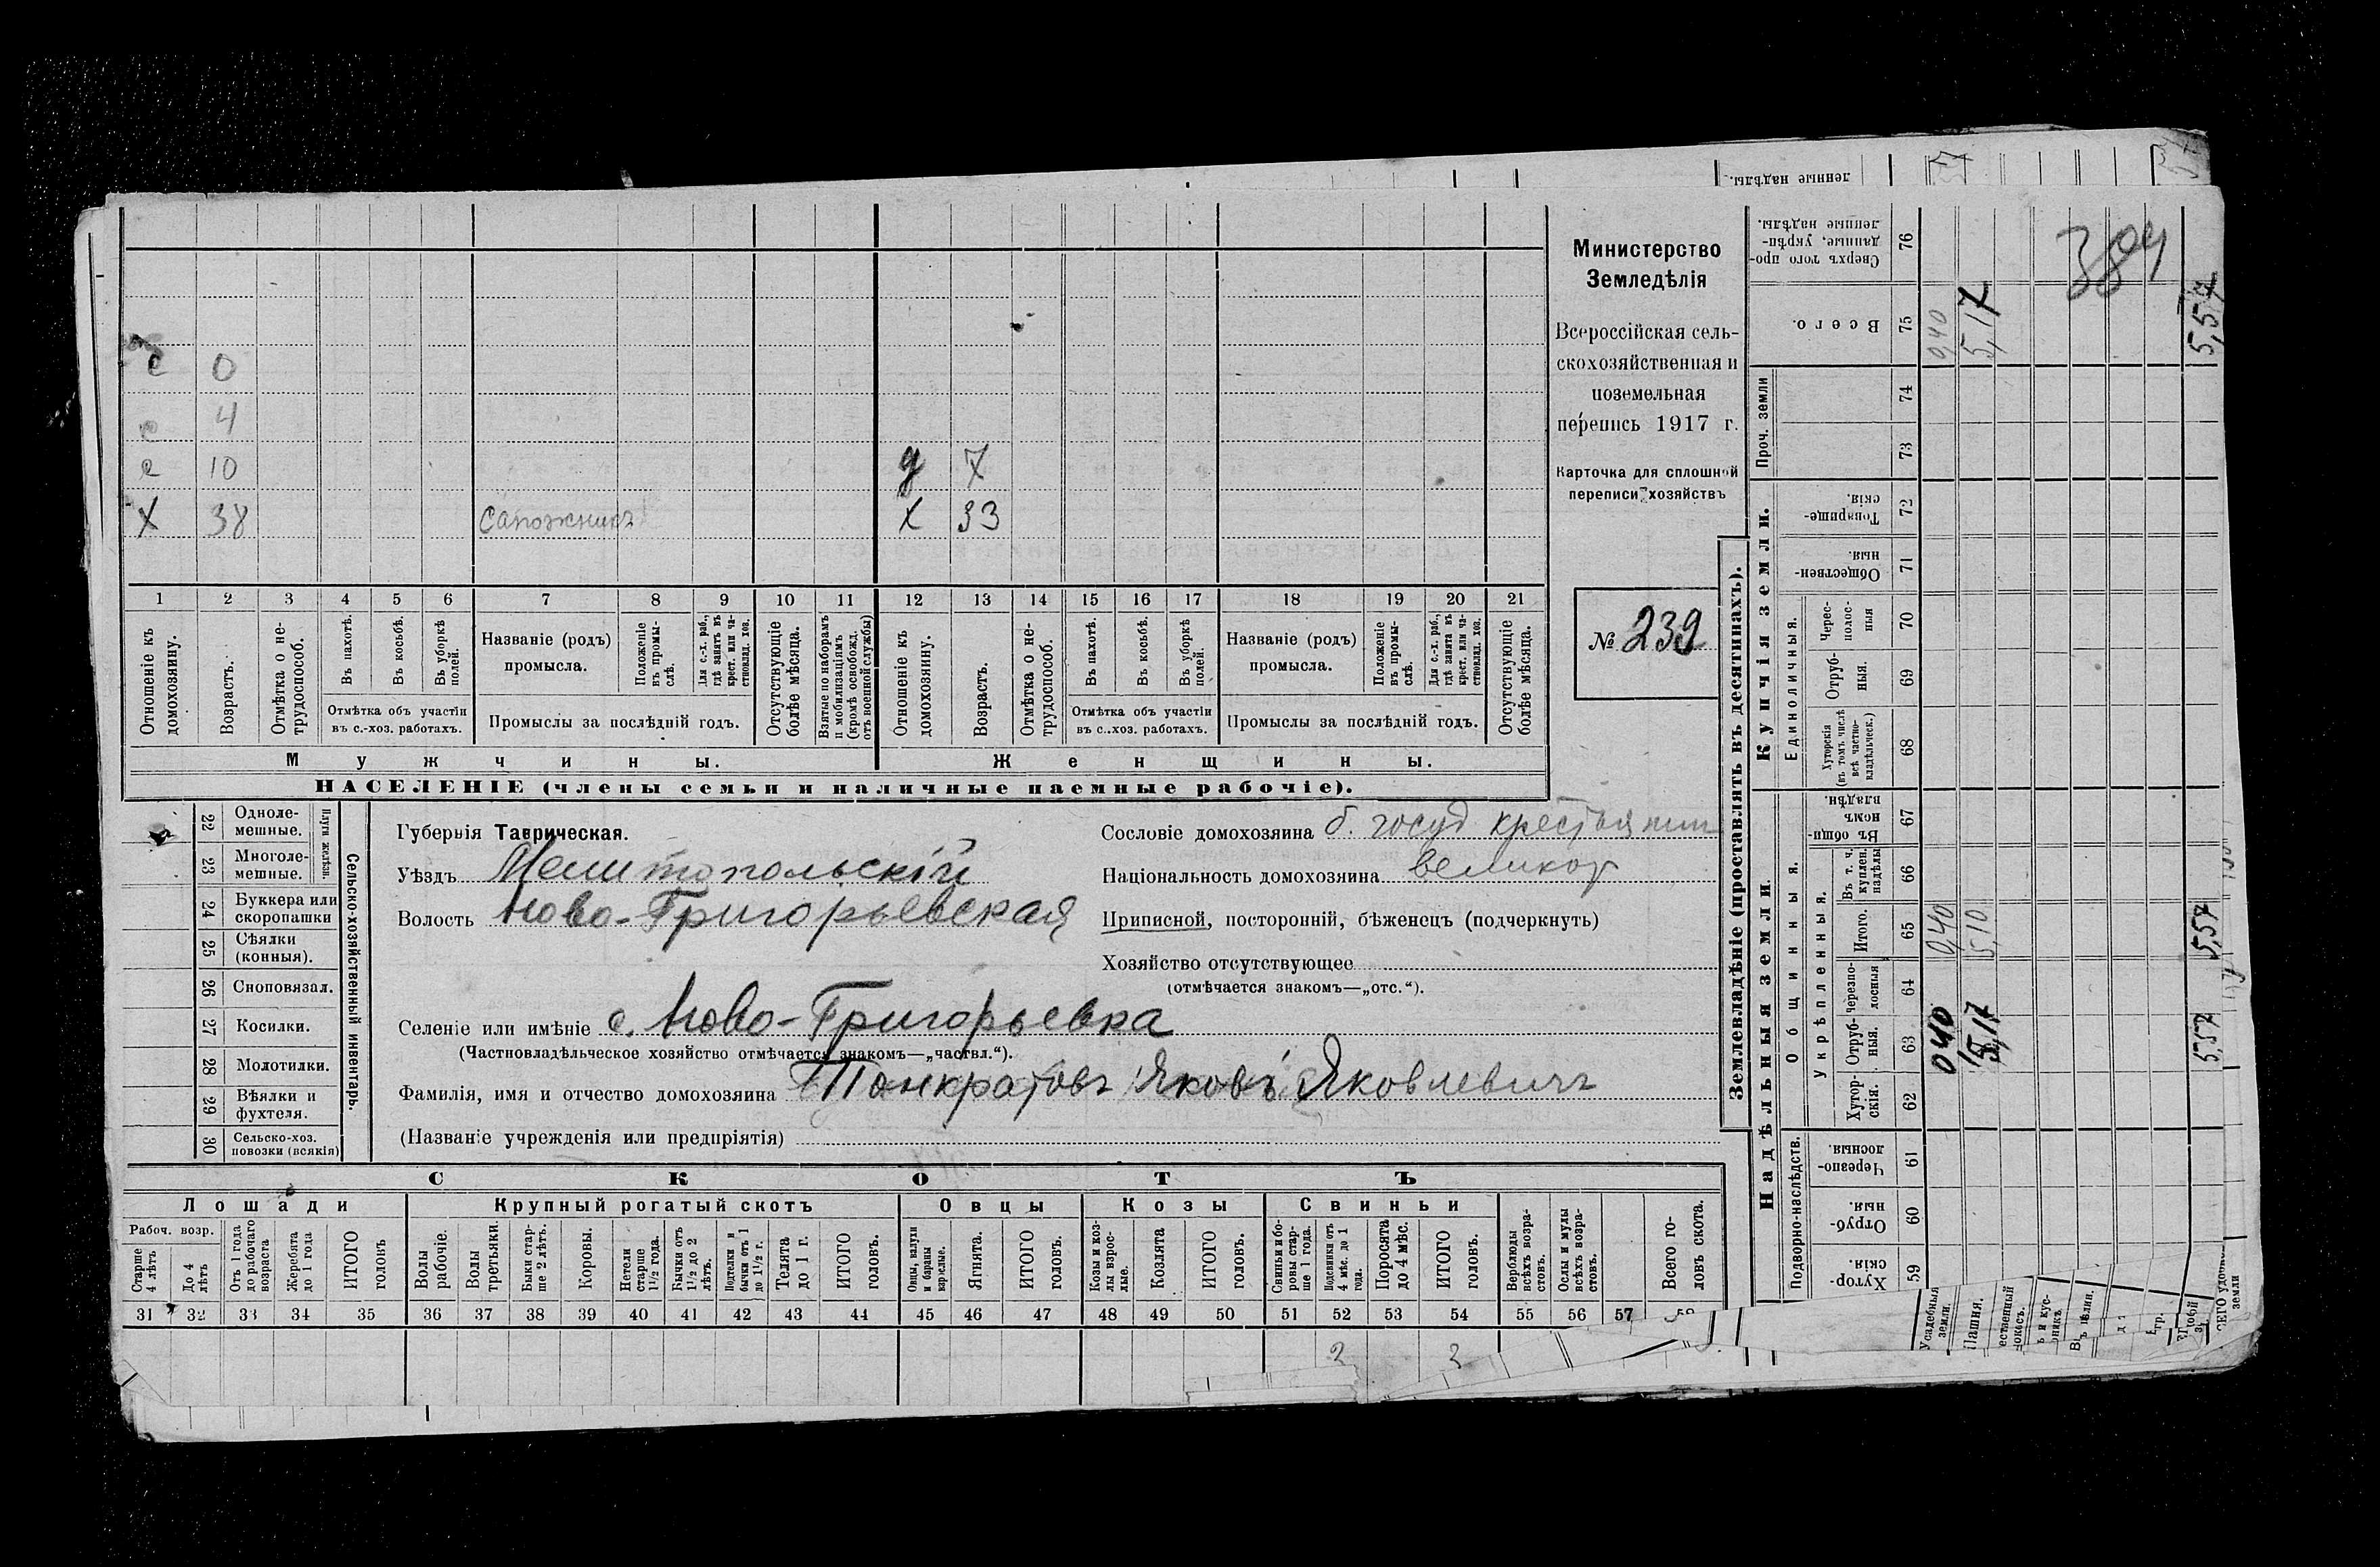 ленные надѣлы.
Министерство
Земледѣлія
Всероссійская сель-
скохозяйственная и
поземельная
перепись 1917 г.
Карточка для сплошной
переписи хозяйствъ
№ 239
с 0
с 4
с 10 д 7
Х 38 Сапожникъ Х 33
1 2 3 4 5 6 7 8 9 10 11 12 13 14 15 16 17 18 19 20 21
Отношеніе къ домохозяину.
Возрастъ.
Отмѣтка о не-трудоспособ.
Въ пахотѣ.
Въ косьбѣ.
Въ уборкѣ полей.
Отмѣтка объ участіи
въ с.-хоз. работахъ.
Названіе (родъ)
промысла.
Положеніе въ промы-слѣ.
Для с.-х. раб., гдѣ занятъ въ крест. или ча-стновлад. хоз.
Промыслы за послѣдній годъ.
Отсутствующіе болѣе мѣсяца.
Взятые по наборамъ и мобилизаціямъ (кромѣ освобожд. отъ военной службы)
Отношеніе къ домохозяину.
Возрастъ.
Отмѣтка о не-трудоспособ.
Въ пахотѣ.
Въ косьбѣ.
Въ уборкѣ полей.
Отмѣтка объ участіи
въ с.-хоз. работахъ.
Названіе (родъ)
промысла.
Положеніе въ промы-слѣ.
Для с.-х. раб., гдѣ занята въ крест. или ча-стновлад. хоз.
Промыслы за послѣдній годъ.
Отсутствующіе болѣе мѣсяца.
Мужчины. Женщины.
НАСЕЛЕНІЕ (члены семьи и наличные наемные рабочіе).
Сельско-хозяйственный инвентарь.
Плуги желѣзн.
22 Одноле-мешные.
23 Многоле-мешные.
24 Буккера или скоропашки
25 Сѣялки (конныя).
26 Сноповязал.
27 Косилки.
28 Молотилки.
29 Вѣялки и фухтеля.
30 Сельско-хоз. повозки (всякія)
Губернія Таврическая.
Уѣздъ Мелитопольскій
Волость Ново-Григорьевская
Селеніе или имѣніе с. Ново-Григорьевка
(Частновладѣльческое хозяйство отмѣчается знакомъ—„частвл.“).
Фамилія, имя и отчество домохозяина Панкратовъ Яковъ Яковлевичъ
(Названіе учрежденія или предпріятія)
Сословіе домохозяина б. госуд крестьянин
Національность домохозяина великор
Приписной, посторонній, бѣженецъ (подчеркнуть)
Хозяйство отсутствующее
(отмѣчается знакомъ—„отс.“).
СКОТЪ
Лошади Крупный рогатый скотъ Овцы Козы Свиньи
Рабоч. возр.
Старше 4 лѣтъ
До 4 лѣтъ
Отъ 1 года до рабочаго возраста
Жеребята до 1 года
ИТОГО головъ
Волы рабочіе.
Волы третьяки.
Быки стар-ше 2 лѣтъ.
Коровы.
Нетели старше 1½ года.
Бычки отъ 1½ до 2 лѣтъ.
Подтелки и бычки отъ 1 до 1½ г.
Телята до 1 г.
ИТОГО головъ.
Овцы, валухи и бараны взрослые.
Ягнята.
ИТОГО головъ.
Козы и коз-лы взрос-лые.
Козлята
ИТОГО головъ.
Свиньи и бо-ровы стар-ше 1 года.
Подсвинки отъ 4 мѣс. до 1 года.
Поросята до 4 мѣс.
ИТОГО головъ.
Верблюды всѣхъ возра-стовъ.
Ослы и мулы всѣхъ возра-стовъ.
Всего го-ловъ скота.
31 32 33 34 35 36 37 38 39 40 41 42 43 44 45 46 47 48 49 50 51 52 53 54 55 56 57
2 2
Землевладѣніе (проставлять въ десятинахъ).
Надѣльныя земли.
Купчія земли.
Проч. земли
Подворно-наслѣдств.
Общинныя.
Укрѣпленныя.
Единоличныя.
59 Хутор-скія.
60 Отруб-ныя.
61 Черезпо-лосныя.
62 Хутор-скія.
63 Отруб-ныя. 0,40 5,17 5,57
64 черезпо-лосныя
65 Итого. 0,40 5,10 5,57
66 Въ т. ч. куплен. надѣлы
67 Въ общи-номъ владѣн.
68 Хуторскія (въ томъ числѣ всѣ частно-владѣльческ.)
69 Отруб-ныя.
70 Черес-полос-ныя
71 Обществен-ныя.
72 Товарище-скія.
73
74
75 Всего. 0,40 5,17 5,57
76 Сверхъ того про-данные, укрѣп-ленные надѣлы.
384
Усадебныя земли.
Пашня.